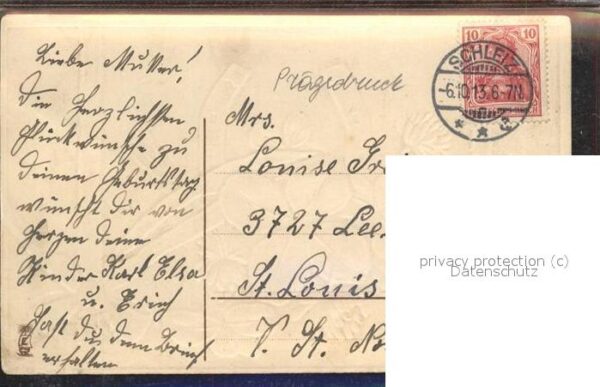 Liebe Mutter!
die herzlichsten
Glückwünsche zu
deinen Geburtstag
wünscht dir von
herzen deine
Kinder Karl Elsa
u. Erich
Hast du den Brief
erhalten
Prägedruck
10 10
SCHLEIZ
-6.10.13.6-7N.
Mrs.
Louise
3727 Lee
St. Louis
V. St. No
privacy protection (c)
Datenschutz